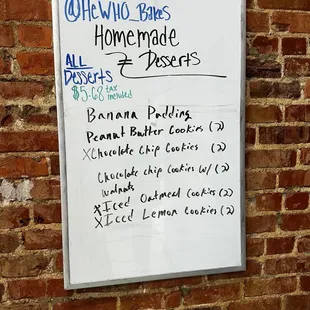 @HeWHO_Bakes
Homemade
≠ Desserts
ALL
Desserts
$5.68 tax
included
Banana Pudding
Peanut Butter Cookies (2)
X Chocolate Chip Cookies (2)
Chocolate chip Cookies w/ (2)
walnuts
X Iced Oatmeal Cookies (2)
X Iced Lemon Cookies (2)